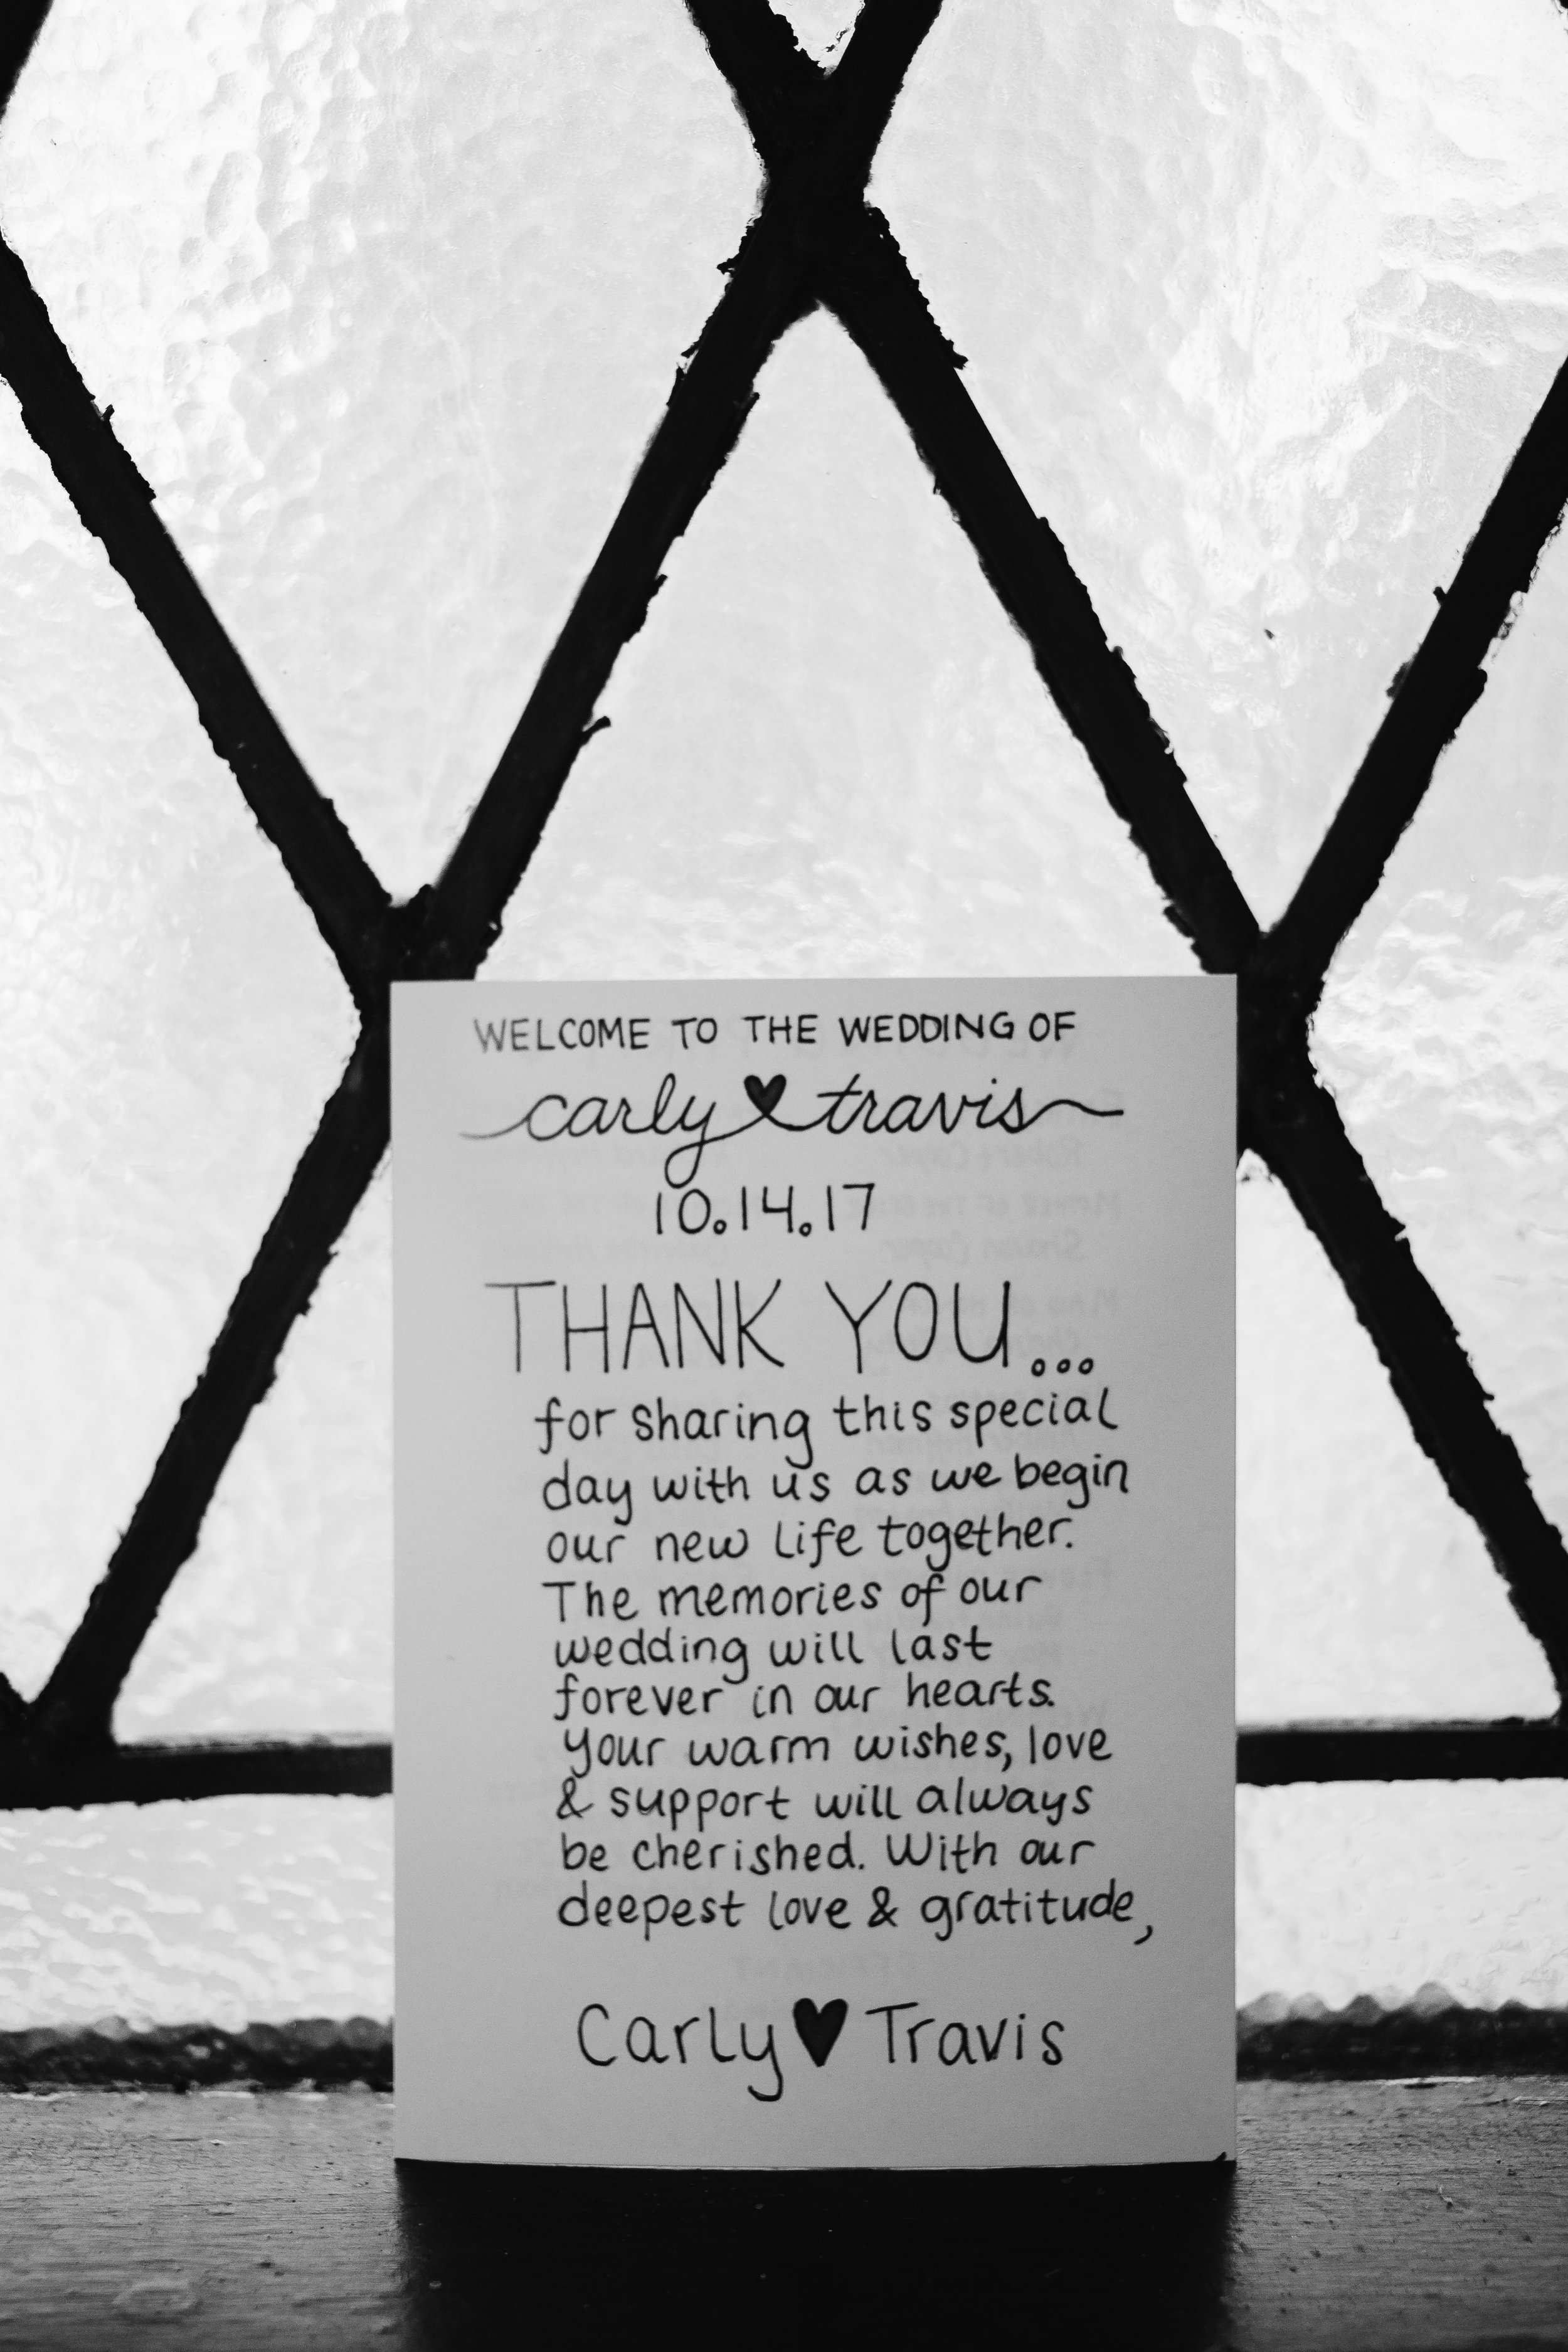 WELCOME TO THE WEDDING OF
carly ♥ travis
10.14.17
THANK YOU...
for sharing this special
day with us as we begin
our new life together.
The memories of our
wedding will last
forever in our hearts.
Your warm wishes, love
& support will always
be cherished. With our
deepest love & gratitude,
Carly ♥ Travis